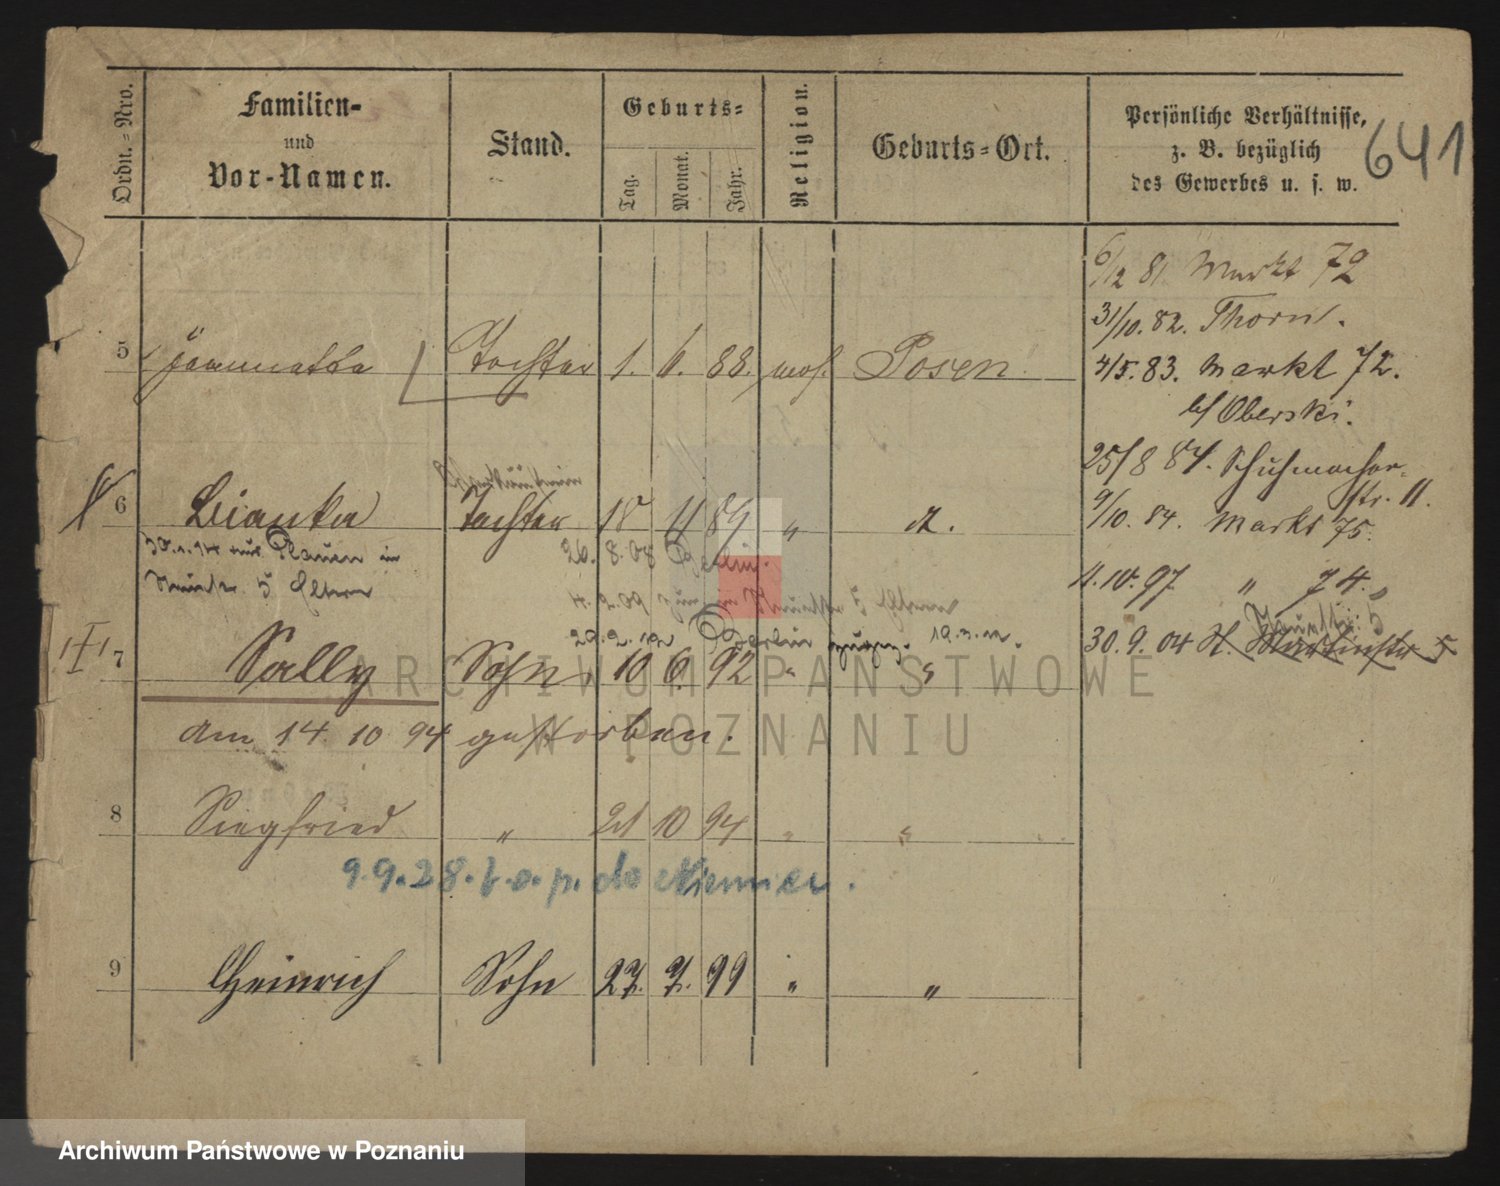 Ordn.=Nro.
Familien-
und
Vor-Namen.
Stand.
Geburts=
Tag.
Monat.
Jahr.
Religion.
Geburts=Ort.
Persönliche Verhältnisse,
z. B. bezüglich
des Gewerbes u. s. w.
641
6/12 81 Markt 72
31/10. 82. Thorn.
4/5. 83. Markt 72.
b/ Oberski.
25/8 84. Schuhmacher-
str. 11.
9/10. 84. Markt 75.
4.10.97 " 74.
30.9.04 St. Martinstr 5
5 Tochter 1. 6. 88. mos. Posen
6 Bianka Tochter 18 11 89 "
aus Plauen in
5 Eltern
26. 8. 08 Berlin.
29.2.12 Berlin 19.3.12.
7 Sally Sohn 10 6. 92 " "
am 14. 10 94 gestorben.
8 Siegfried " 21 10 94 " "
9.9.28. do Niemiec.
9 Heinrich Sohn 27. 7. 99 " "
ARCHIWUM PAŃSTWOWE
W POZNANIU
Archiwum Państwowe w Poznaniu